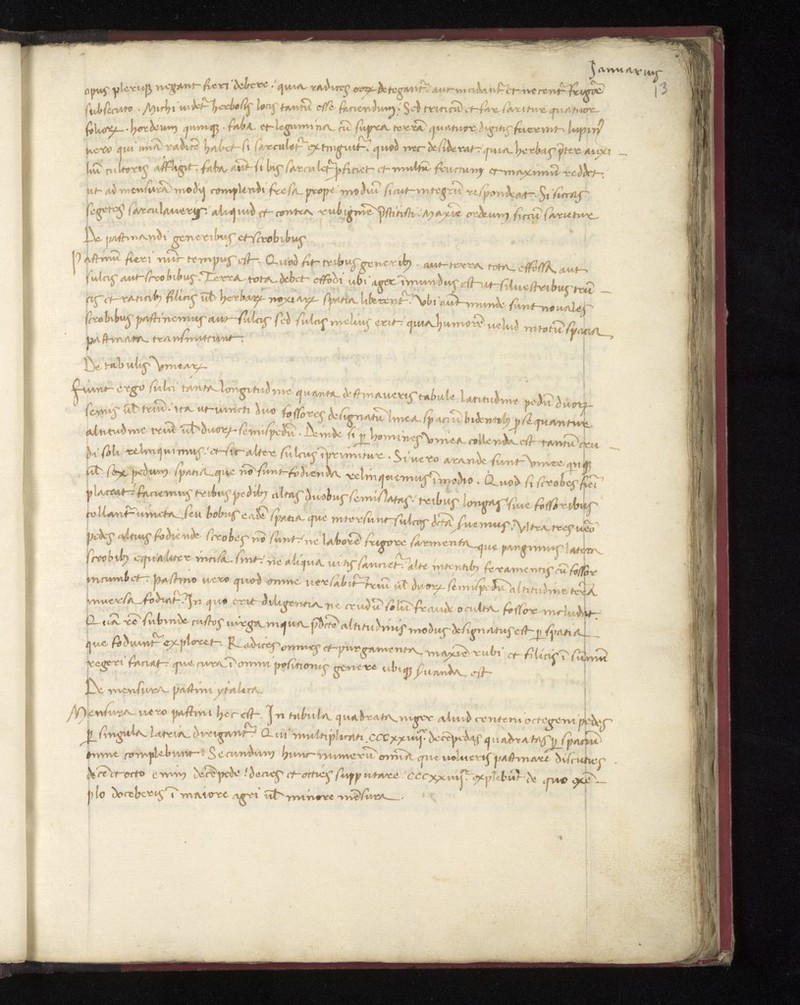 Januarius
13
opus pleriq̃ negant fieri debere · quia radices eoꝝ detegant᷑ aut incidant᷑ et necent᷑ frigore
subsecuto · Michi uidet᷑ herbosis locis tantũ esse faciendum · Sed triticũ et far saritur quatuor
folioꝝ · hordeum quinq̃ · faba et legumina cũ supra terrã quatuor digitis fuerint lupin᷒
uero qui unã radicẽ habet si sarculet᷑ extinguit᷑ · quod nec desiderat · quia herbas p̃ter auxi
liũ cultoris affligit · faba aũt si bis sarculet᷑ proficiet et multũ fructum et maximũ reddet ·
ut ad mensurã modij complendi fresa prope modiũ sicut integrũ respondeat · Si siccas
segetes sarculaueris · aliquid et contra rubiginẽ p̃stitisti · Maxime ordeum siccũ saritur
De pastinandi generibus et scrobibus
Pastinũ fieri nũc tempus est · Quod fit tribus generib; · aut terra tota effossa aut
sulcis aut scrobibus · Terra tota debet effodi ubi ager ĩmundus est ut siluestribus trũ
cis et radicib; filicis ul̃ herbaꝝ noxiaꝝ spatia liberent᷑ · Vbi aũt munde sunt nouales
scrobibus pastinemus aut sulcis sed sulcis melius erit · quia humorẽ uelud in totũ spacia
pastinata transmittunt ·
De tabulis Vineaꝝ
Fiunt ergo sulci tanta longitudine quanta destinaueris tabule · latitudine pedũ duoꝝ
semis ul̃ triũ · ita ut iuncti duo fossores designatũ linea spaciũ bidentib; p̃sequantur
altitudine triũ ul̃ duoꝝ semispedũ · Deinde si ꝑ homines Vinea collenda est tantũ cru
di soli relinquimus · et sic alter sulcus ĩprimitur · Si uero arande sunt Vinee quiq̃
ul̃ sex pedum spatia que nõ sunt fodienda relinquemus ĩ medio · Quod si scrobes fieri
placeat · faciemus tribus pedib; altas duobus semis latas · tribus longas siue fossoribus
collant᷑ uineta seu bobus eadẽ spatia que intersunt sulcos dicta suemus · Vltra tres uero
pedes altius fodiende scrobes nõ sunt · ne laborẽt frigore sarmenta que pangimus latera
scrobib; equaliter incisa sint · ne aliqua uitis sauciet᷑ · alte intentib; feramentis cũ fossor
incumbet · pastino uero quod omne uersabit᷑ triũ ul̃ duoꝝ semispedũ altitudine terra
inuersa fodiat᷑ · In quo erit diligentia ne crudũ solũ fraude oculta fossor includat ·
Quã rẽ subinde custos uirga in qua p̃dcte altitudinis modus designatus est ꝑ spatia
que fodiunt᷑ exploret · Radices omnes et purgamenta maxime rubi et filicis ĩ sũmũ
regeri faciat · que cura ĩ omni positionis genere ubiq̃ seruanda est
De mensura pastini ytalica
Mensura uero pastini hec est · In tabula quadrata iuger aliud centeni octogeni pedes
ꝑ singula lateria dirigant᷑ · Qui multiplicati cccxxiiij decẽpedas quadratas ꝑ spaciũ
omne complebunt · Secundum hunc numerũ omĩa que uolueris pastinare discuties ·
decẽ et octo enim decẽpede decies et octies supputate · cccxxiiij · explebũt de quo exẽ
plo doceberis ĩ maiore agri ul̃ minore mẽsura ·